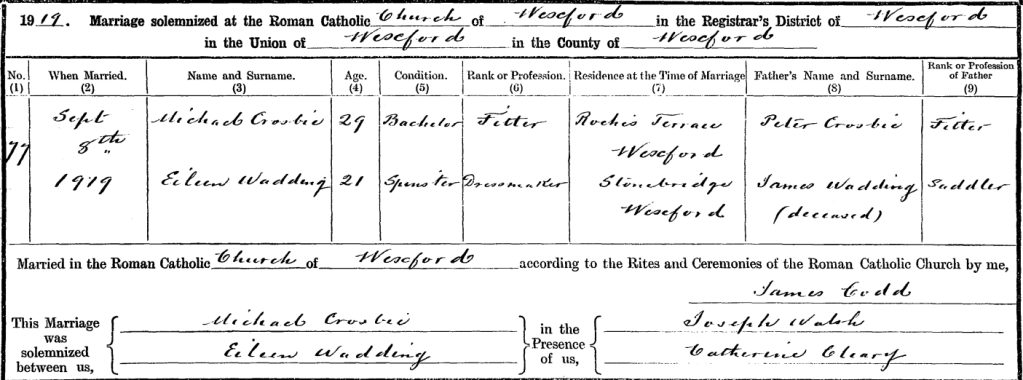 1919. Marriage solemnized at the Roman Catholic Church of Wexford in the Registrar's District of Wexford
in the Union of Wexford in the County of Wexford
No. (1) When Married. (2) Name and Surname. (3) Age. (4) Condition. (5) Rank or Profession. (6) Residence at the Time of Marriage (7) Father's Name and Surname. (8) Rank or Profession of Father (9)
77 Sept 8th 1919 Michael Crosbie 29 Bachelor Fitter Roches Terrace Wexford Peter Crosbie Fitter
Eileen Wadding 21 Spinster Dressmaker Stonebridge Wexford James Wadding (deceased) Saddler
Married in the Roman Catholic Church of Wexford according to the Rites and Ceremonies of the Roman Catholic Church by me,
James Codd
This Marriage was solemnized between us, Michael Crosbie in the Presence of us, Joseph Walsh
Eileen Wadding Catherine Cleary